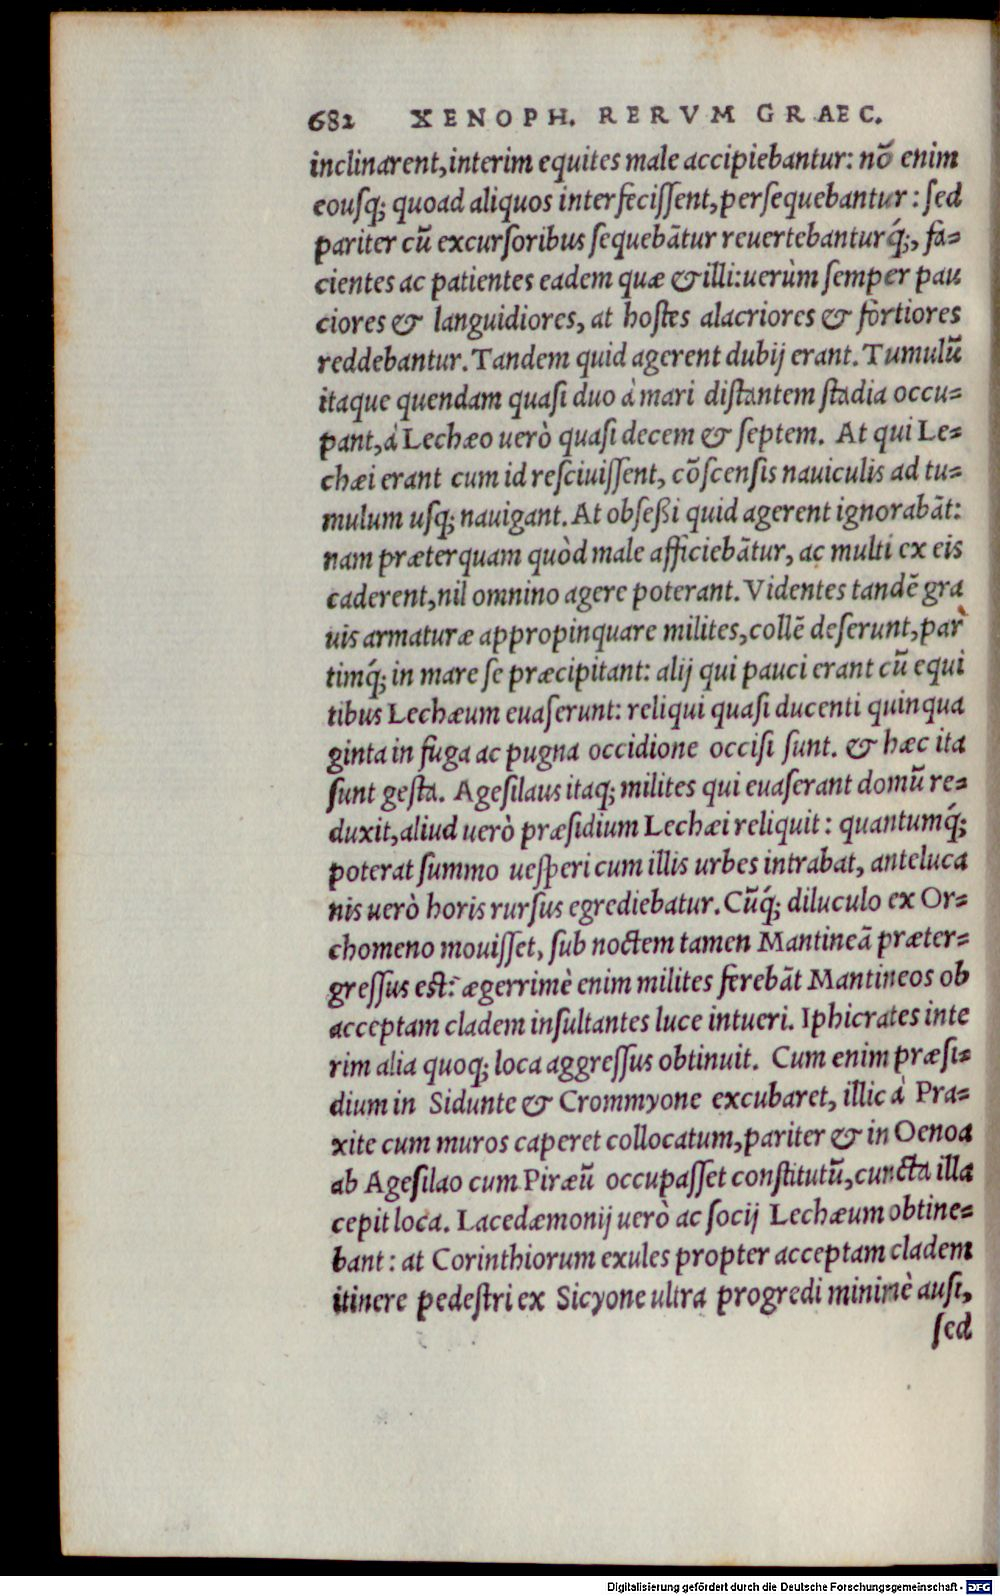 682 XENOPH. RERVM GRAEC.
inclinarent,interim equites male accipiebantur: nō enim
eouſq; quoad aliquos interfeciſſent,perſequebantur: ſed
pariter cū excurſoribus ſequebātur reuertebanturq́;, fa-
cientes ac patientes eadem quæ & illi: uerùm ſemper pau
ciores & languidiores, at hoſtes alacriores & fortiores
reddebantur. Tandem quid agerent dubij erant. Tumulū
itaque quendam quaſi duo à mari diſtantem ſtadia occu-
pant,à Lechæo uerò quaſi decem & ſeptem. At qui Le-
chæi erant cum id reſciuiſſent, cōſcenſis nauiculis ad tu-
mulum uſq; nauigant. At obſeßi quid agerent ignorabāt:
nam præterquam quòd male afficiebātur, ac multi ex eis
caderent,nil omnino agere poterant. Videntes tandē gra
uis armaturæ appropinquare milites,collē deſerunt,par
timq́; in mare ſe præcipitant: alij qui pauci erant cū equi
tibus Lechæum euaſerunt: reliqui quaſi ducenti quinqua
ginta in fuga ac pugna occidione occiſi ſunt. & hæc ita
ſunt geſta. Ageſilaus itaq; milites qui euaſerant domū re-
duxit,aliud uerò præſidium Lechæi reliquit: quantumq́;
poterat ſummo ueſperi cum illis urbes intrabat, anteluca
nis uerò horis rurſus egrediebatur. Cūq́; diluculo ex Or-
chomeno mouiſſet, ſub noctem tamen Mantineā præter-
greſſus eſt: ægerrimè enim milites ferebāt Mantineos ob
acceptam cladem inſultantes luce intueri. Iphicrates inte
rim alia quoq; loca aggreſſus obtinuit. Cum enim præſi-
dium in Sidunte & Crommyone excubaret, illic à Pra-
xite cum muros caperet collocatum,pariter & in Oenoa
ab Ageſilao cum Piræū occupaſſet conſtitutū,cuncta illa
cepit loca. Lacedæmonij uerò ac ſocij Lechæum obtine-
bant: at Corinthiorum exules propter acceptam cladem
itinere pedeſtri ex Sicyone ultra progredi minimè auſi,
ſed
Digitalisierung gefördert durch die Deutsche Forschungsgemeinschaft - DFG